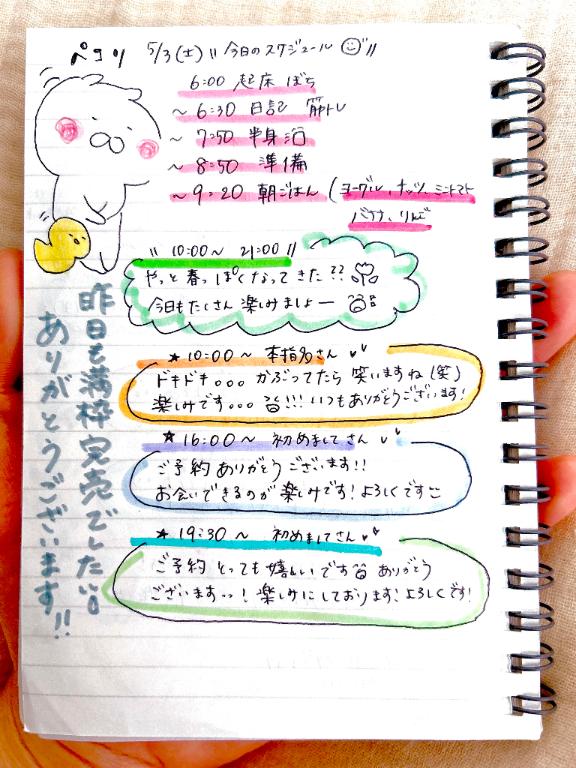 ペコリ
5/3(土) 〃今日のスケジュール〃
6:00 起床 ぼち
～6:30 日記 筋トレ
～7:50 半身浴
～8:50 準備
～9:20 朝ごはん (ヨーグル、ナッツ、ミニトマト
バナナ、りんご
〃10:00～ 21:00〃
やっと春っぽくなってきた??
今日もたくさん楽しみましょー
★10:00～ 本指名さん
ドキドキ。。。かぶってたら笑いますね(笑)
楽しみです。。。!!! いつもありがとうございます!
★16:00～ 初めましてさん
ご予約ありがとうございます!!
お会いできるのが楽しみです! よろしくです
★19:30～ 初めましてさん
ご予約 とっても嬉しいです ありがとう
ございますっっ! 楽しみにしております! よろしくです!
昨日も満枠完売でした。
ありがとうございます!!